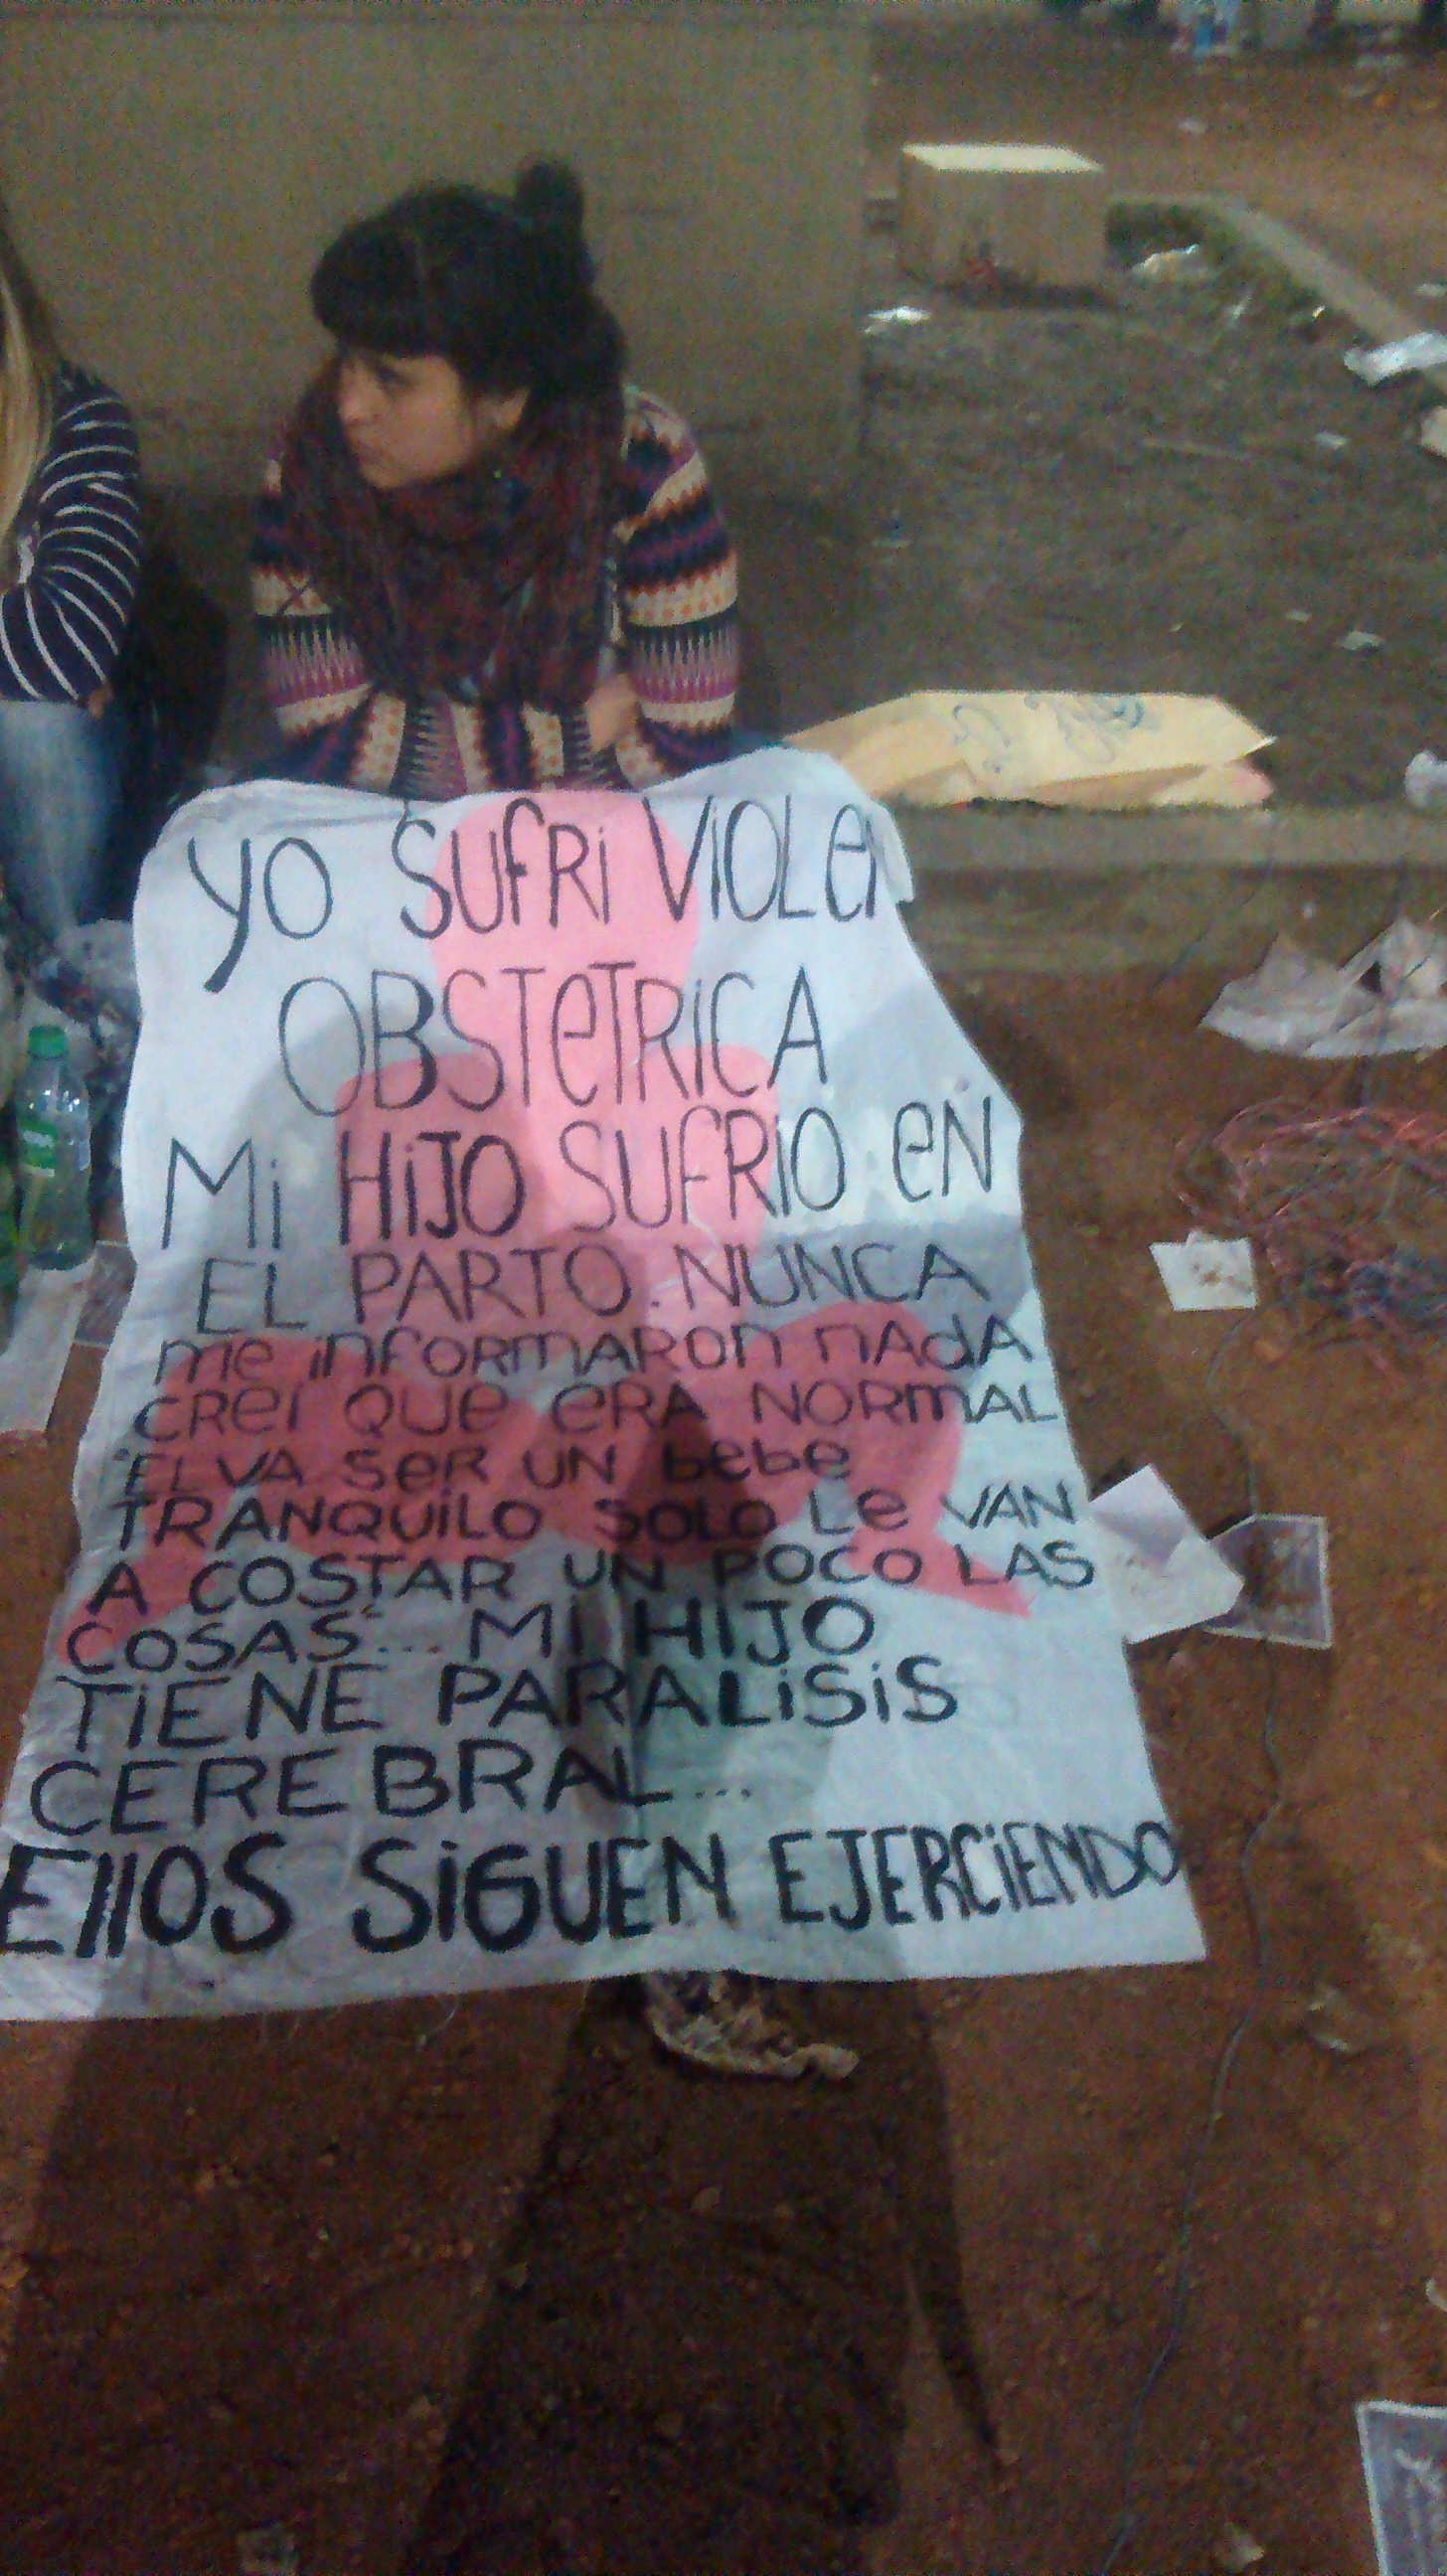 YO SUFRI VIOLEN
OBSTETRICA
Mi HiJO SUFRIO EN
EL PARTO. NUNCA
me informaron nada
CREI QUE ERA NORMAL
"EL VA SER UN bebe
TRANQUiLO SOLO Le VAN
A COSTAR UN POCO LAS
COSAS"... Mi HiJO
TiENE PARALiSiS
CEREBRAL...
EllOS SiGUEN EJERCiENDO